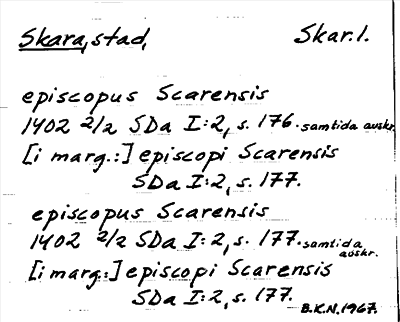 Skara, stad, Skar. l.
episcopus Scarensis
1402 2/2 SDa I:2, s. 176. samtida avskr.
[i marg.:] episcopi Scarensis
SDa I:2, s. 177.
episcopus Scarensis
1402 2/2 SDa I:2, s. 177. samtida avskr.
[i marg.:] episcopi Scarensis
SDa I:2, s. 177.
B.K.N. 1967.